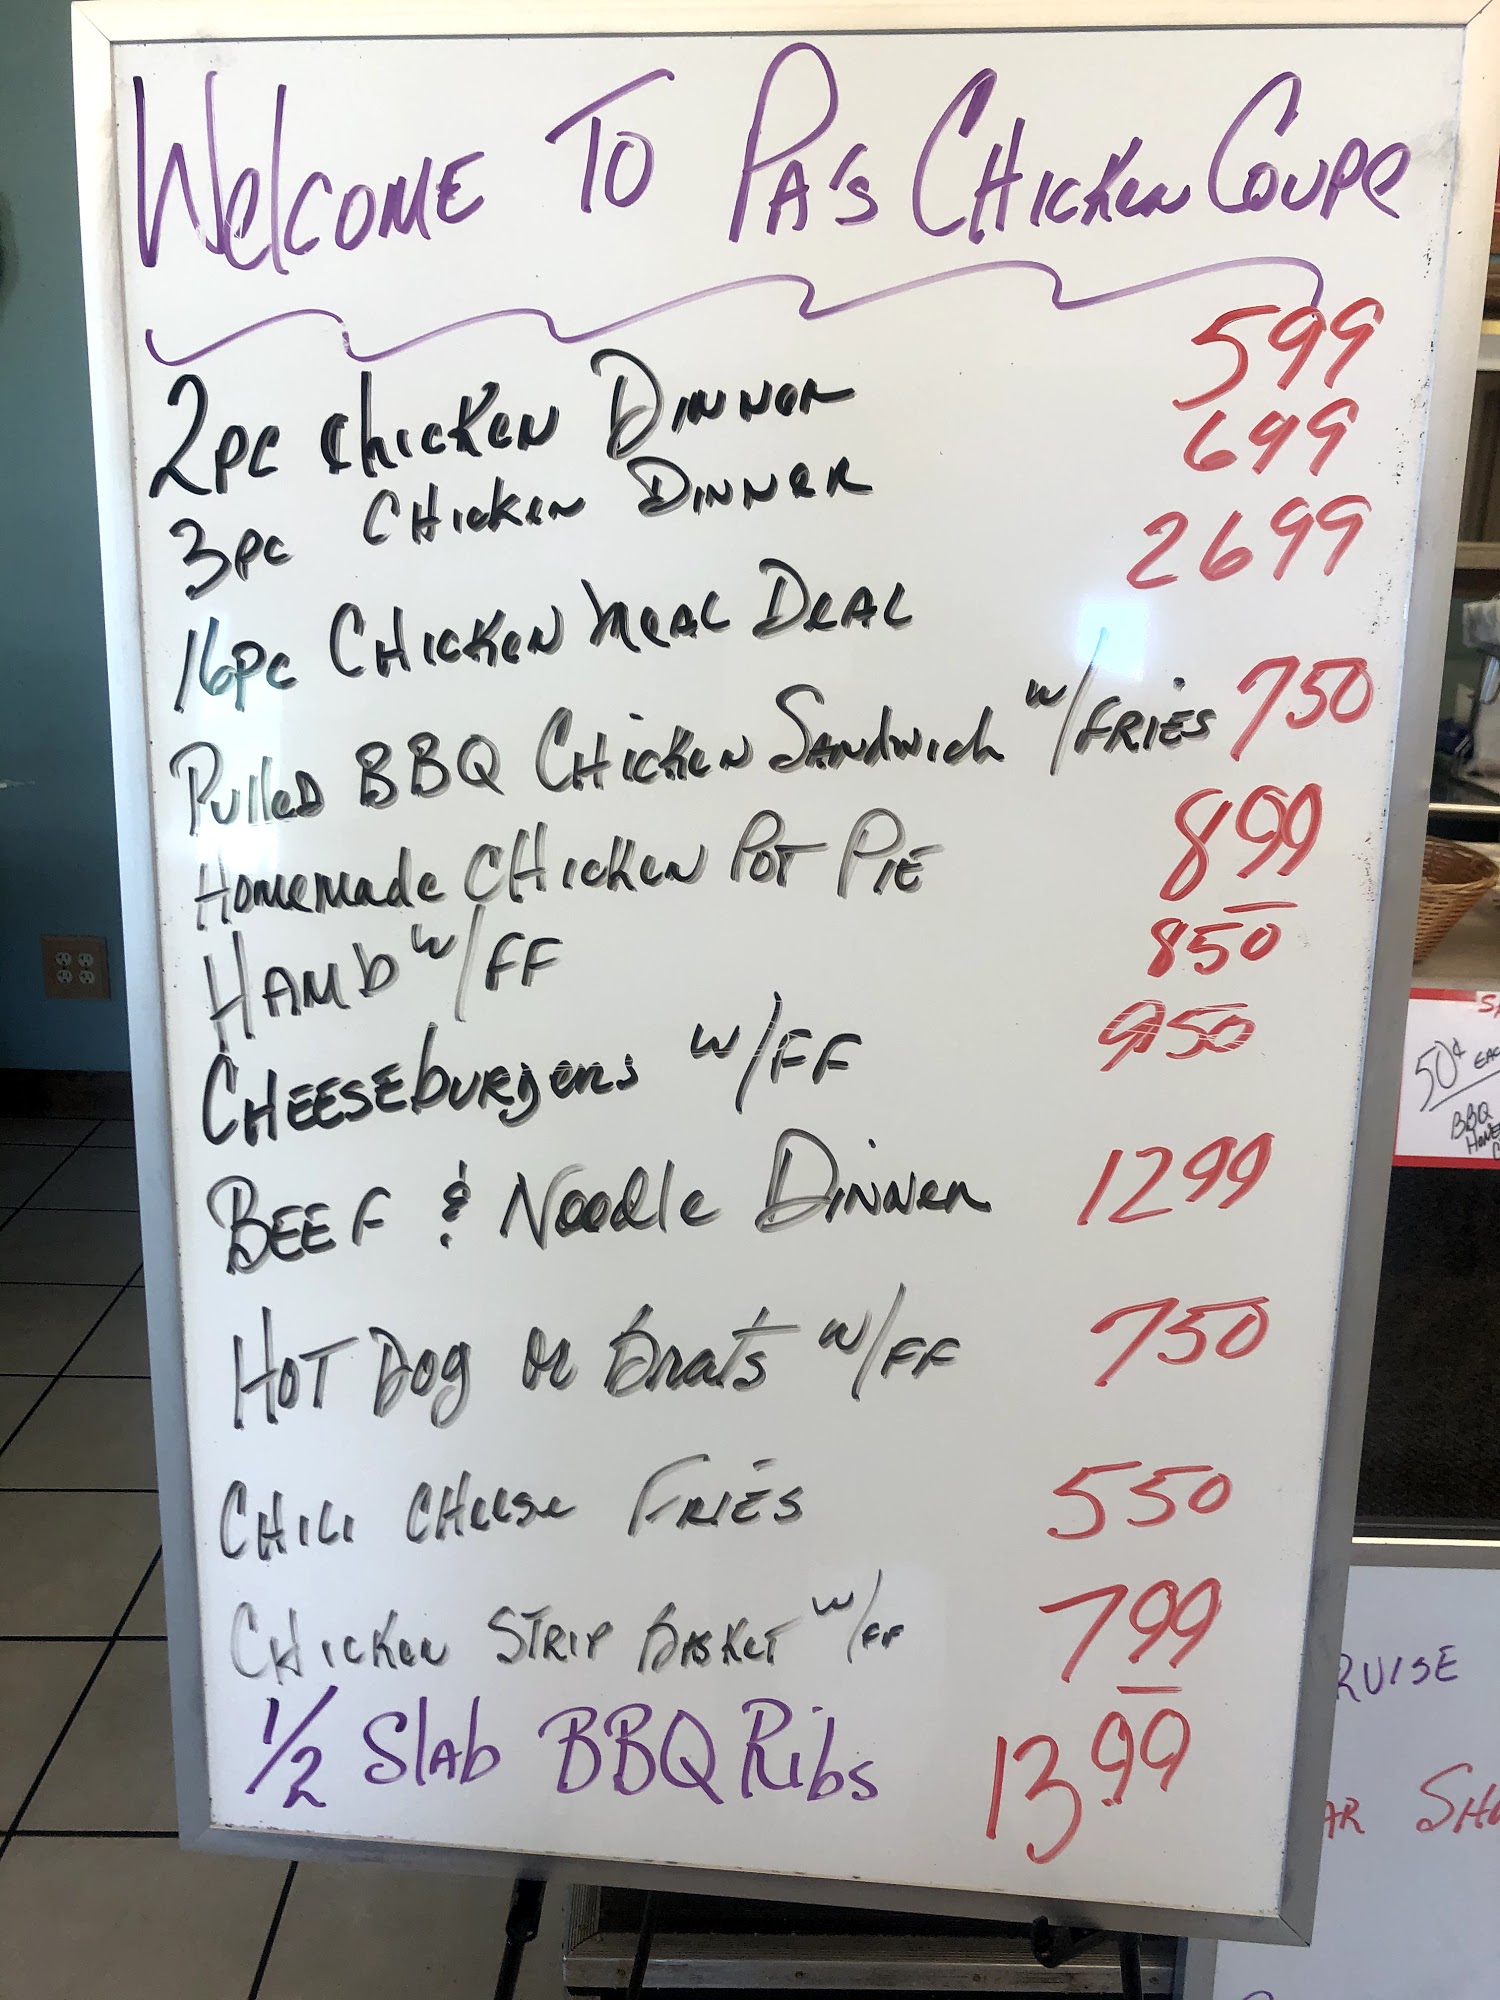 Welcome To Pa's Chicken Coupe
2pc Chicken Dinner 599
3pc Chicken Dinner 699
16pc Chicken Meal Deal 2699
Pulled BBQ Chicken Sandwich w/Fries 750
Homemade Chicken Pot Pie 899
Hamb w/FF 850
Cheeseburgers w/FF 950
Beef & Noodle Dinner 1299
Hot Dog or Brats w/FF 750
Chili Cheese Fries 550
Chicken Strip Basket w/FF 799
1/2 Slab BBQ Ribs 1399
50¢ EAC
BBQ
RUISE
AR